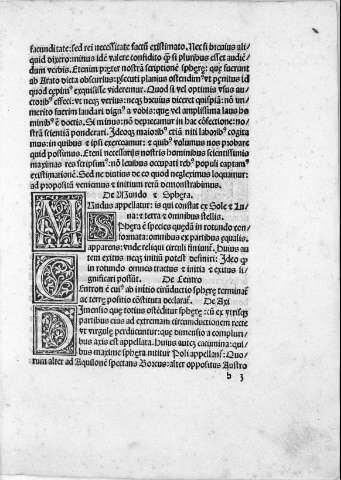 facunditate: sed rei necessitate factū existimato. Nec si breuius ali/
quid dixero: minus idē valere confidito q̄ si pluribus esset audiē/
dum verbis. Etenim preter nostrā scriptionē sphere: que fuerunt
ab Arato dicta obscurius: psecuti planius ostendim⁹: vt penitus id
quod cepim⁹ exquisisse videremur. Quod si vel optimis vsus au/
ctorib⁹ effeci: vt neqz verius: neqz breuius diceret quispiā: nō im/
merito fuerim laudari dign⁹ a vobis: que vel amplissima laus ho
minib⁹ ē doctis. Si minus: nō deprecamur in hac cōfectione: no/
strā scientiā ponderari. Ideoqz maiorib⁹ etiā niti laborib⁹ cogita
mus: in quibus & ipsi exerceamur: & quib⁹ volumus nos probare
quid possimus. Etenī necessarijs nostris hominibus scientissimo
maximas res scripsim⁹: nō leuibus occupati reb⁹ populi captam⁹
existimationē. Sed ne diutius de eo quod negleximus loquamur:
ad propositū veniemus & initium rerū demonstrabimus.
De Mundo & Sphera.
MUndus appellatur: is qui constat ex Sole & Lu/
na: & terra & omnibus stellis.
SPhera ē species quedā in rotundo con
formata: omnibus ex partibus equalis.
apparens: vnde reliqui circuli finiunt̄. Huius au
tem exitus neqz initiū potest definiri: Ideo q̄
in rotundo omnes tractus & initia & exitus si/
gnificari possūt. De Centro
CEntron ē cui⁹ ab initio circūductio sphere terminat̄
ac terre positio cōstituta declarat̄. De Axi
DImensio que totius ostēditur sphere: cū ex vtrisqz
partibus eius ad extremam circumductionem recte
vt virgule perducuntur: que dimensio a complurı/
bus axis est appellata. Huius autez cacumina: qui/
bus maxime sphera nititur Poli appellant̄: Quo/
rum alter ad Aquilonē spectans Boreus: alter oppositus Austro
b 3